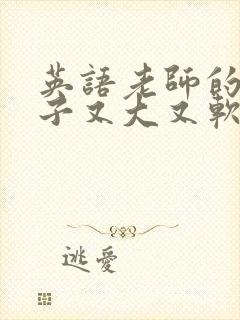 英語老師的
子又大又軟
逃愛